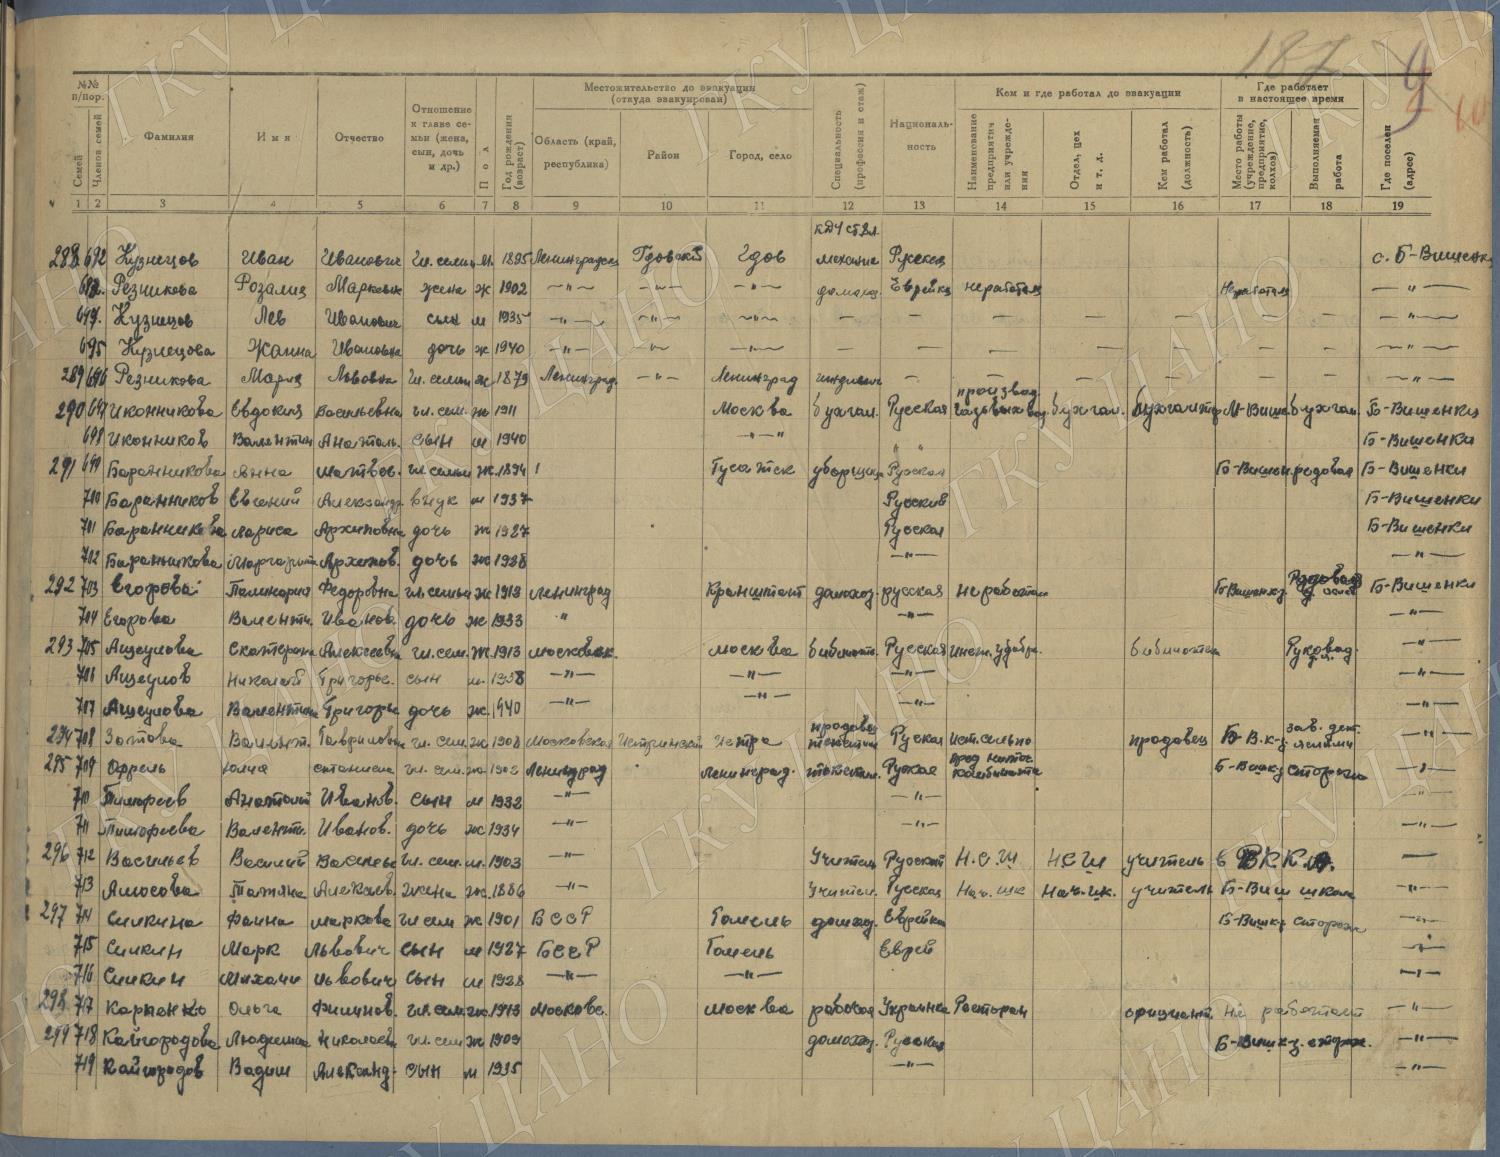 187 9
10
№№ п/пор. Местожительство до эвакуации (откуда эвакуирован) Кем и где работал до эвакуации Где работает в настоящее время
Семей Членов семей Фамилия Имя Отчество Отношение к главе семьи (жена, сын, дочь и др.) Пол Год рождения (возраст) Область (край, республика) Район Город, село Специальность (профессия и стаж) Национальность Наименование предприятия или учреждения Отдел, цех и т. д. Кем работал (должность) Место работы (учреждение, предприятие, колхоз) Выполняемая работа Где поселен (адрес)
1 2 3 4 5 6 7 8 9 10 11 12 13 14 15 16 17 18 19
288 692 Кузнецов Иван Иванович гл. семьи м. 1895 Ленинградская Гдовский Гдов механик Русский с. Б-Вишенки
693 Резникова Розалия Марковн жена ж 1902 —"— —"— —"— домохоз. Еврейка не работала Не работает —"—
694 Кузнецов Лев Иванович сын м 1935 —"— —"— —"— — — — — — — — —"—
695 Кузнецова Жанна Ивановна дочь ж 1940 —"— —"— —"— — — — — — — —"—
289 696 Резникова Мария Львовна гл. семьи ж. 1879 Ленинград. —"— Ленинград иждивен — — — — — — —"—
290 697 Иконникова Евдокия Васильевна гл. сем. ж 1911 Москва бухгал. Русская бухгал. бухгалтер М-Више бухгал. Б-Вишенки
698 Иконников Валентин Анатоль. сын м 1940 —"—" " " Б-Вишенки
291 699 Баранникова Анна Матвеев. гл. семьи ж. 1894 уборщица Русская Б-Вишен. рядовая Б-Вишенки
700 Баранников Евгений Александр внук м 1937 Русский Б-Вишенки
701 Баранникова Лариса Архиповна дочь ж 1927 Русская Б-Вишенки
702 Баранникова Маргарит Архипов. дочь ж 1928 —"— —"—
292 703 Егорова Федоровна гл. семьи ж 1913 Ленинград Кранштант домохоз. русская не работала Б-Вишенки Рядовая Б-Вишенки
704 Егорова Валенти. Иванов. дочь ж 1933 " —"— —"—
293 705 Ащеулова Екатерина Алексеевн гл. сем. ж. 1913 московск. москва библиот. Русская библиотек Руковод. —"—
706 Ащеулов Николай Григорье. сын м. 1938 —"— —"— —"— —"—
707 Ащеулова Валентина Григорье дочь ж. 1940 —"— —"— —"— —"—
294 708 Зотова Валент. Гавриловн гл. сем. ж 1908 Московская Истринский Истра продавец Руская продавец Б-В. к-з зав. дет. яслями —"—
295 709 Юлия гл. сем. ж Ленинград Ленинград. Руская комбината Б-Виш к-з сторожи —"—
710 Тимофеев Анатолий Иванов. сын м 1932 —"— —"— "
711 Тимофеева Валенти. Иванов. дочь ж 1934 —"— —"— —"—
296 712 Васильев Василий Василье гл. сем. м. 1903 —"— Учитель Русский Н.С.Ш НСШ учитель в РККА. —
713 Амосова Татяна Алексеев. жена ж. 1886 —"— Учител. Русская Нач. шк Нач. шк. учитель Б-Виш школа —"—
297 714 Симкина Фаина маркова гл сем ж 1901 БССР Гомель домхоз. Еврейка Б-Виш к-з сторожи —"—
715 Симкин Марк Львович сын м 1927 БССР Гомель Еврей —"—
716 Симкин Михаил Львович сын м 1928 —"— —"— —"—
298 717 Карпенко Ольга Филипов. гл. сем. ж. 1913 Московс. москва рабочая Украинка Ресторан официант. Не работает —"—
299 718 Кайгородова Людмила Николаевн гл. сем ж 1909 домохоз. Русская Б-Виш к-з. сторож. —"—
719 Кайгородов Вадим Александ. сын м 1935 —"— —"—
ГКУ ЦАНО